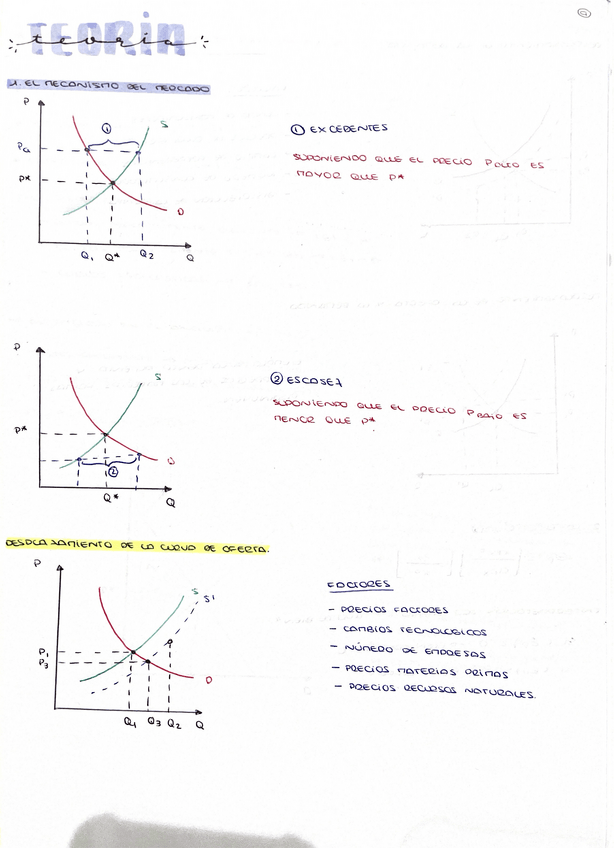 TEORIA
teoria
1. EL MECANISMO DEL MERCADO
P
S
①
Pa
P*
D
Q₁ Q* Q₂ Q
① EXCEDENTES
SUPONIENDO QUE EL PRECIO P alto ES
MAYOR QUE P*
P
S
P*
D
②
Q*
Q
② ESCASEZ
SUPONIENDO QUE EL PRECIO P BAJO ES
MENOR QUE P*
DESPLAZAMIENTO DE LA CURVA DE OFERTA.
P
S
S'
P₁
P₃
D
Q₁ Q₃ Q₂ Q
FACTORES
- PRECIOS FACTORES
- CAMBIOS TECNOLOGICOS
- NÚMERO DE EMPRESAS
- PRECIOS MATERIAS PRIMAS
- PRECIOS RECURSOS NATURALES.